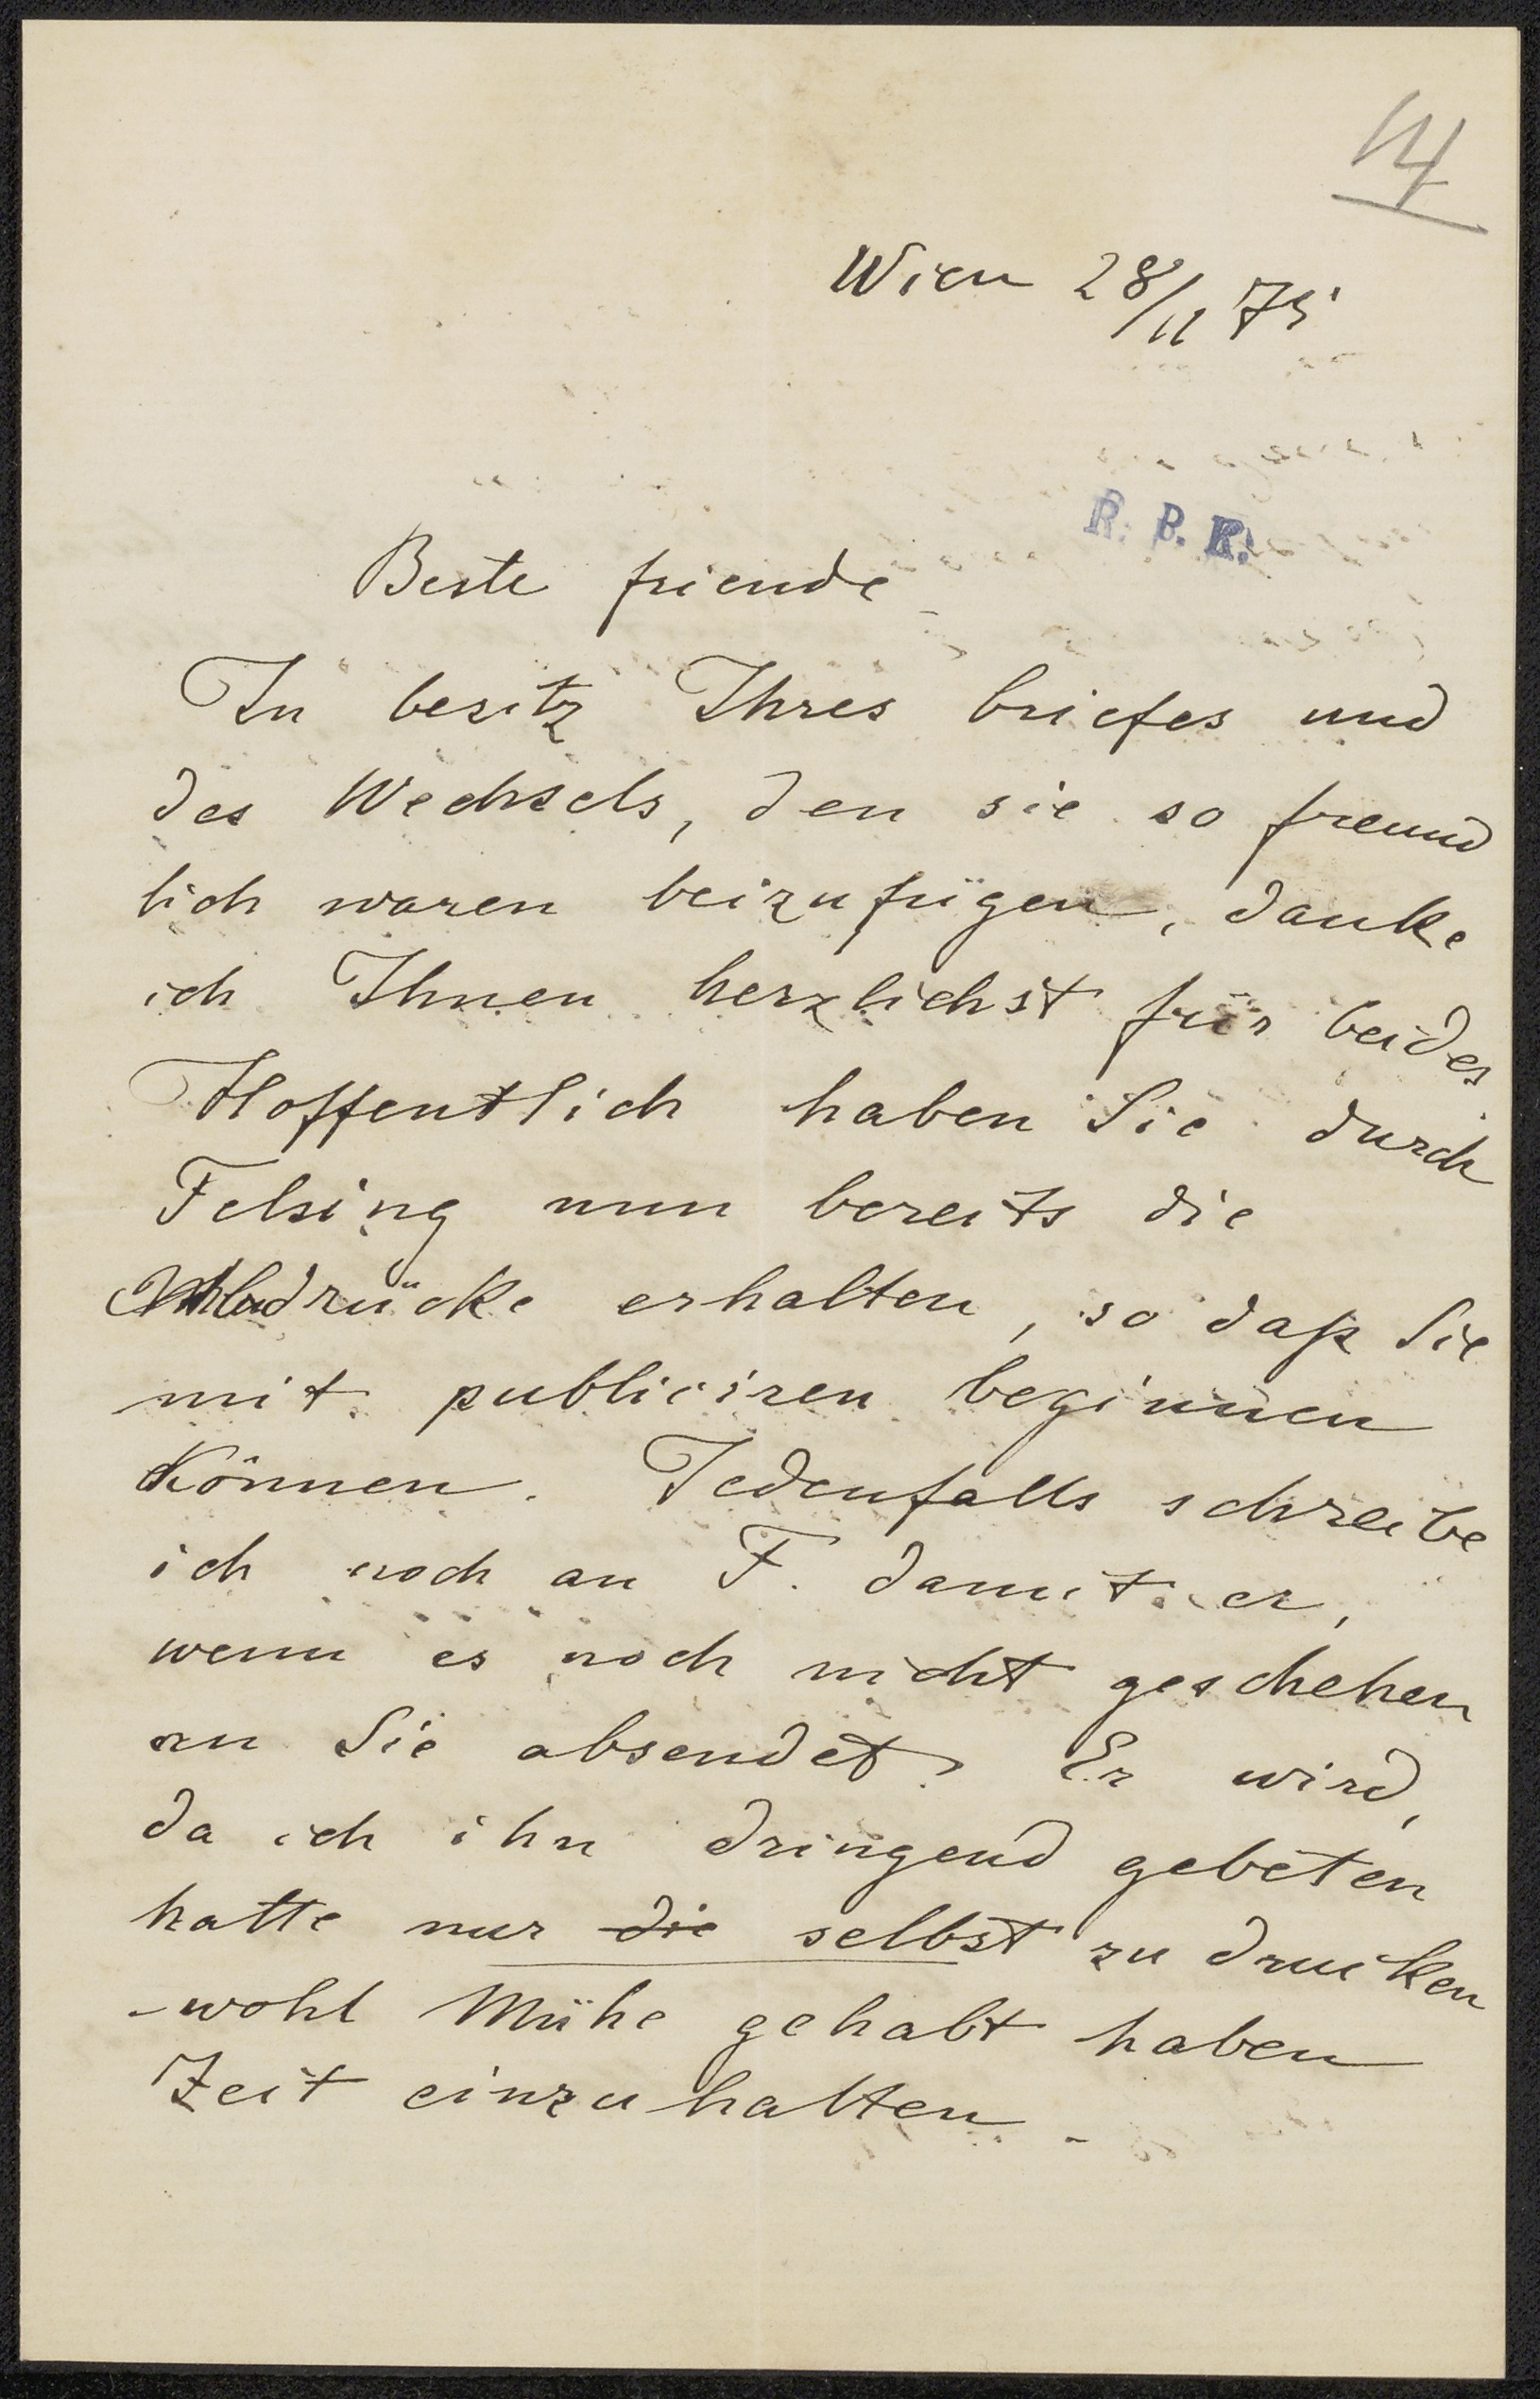 14
Wien 28/11 75
R. P. K.
Beste friende
In besitz Ihres briefes und
des Wechsels, den sie so freund
lich waren beizufügen, danke
ich Ihnen herzlichst für beides
Hoffentlich haben Sie durch
Felsing nun bereits die
Abdrücke erhalten, so daß Sie
mit publiciren beginnen
können. Jedenfalls schreibe
ich noch an F. damit er,
wenn es noch nicht geschehen
an Sie absendet. Er wird,
da ich ihn dringend gebeten
hatte nur die selbst zu drucken
wohl Mühe gehabt haben
Zeit einzuhalten -